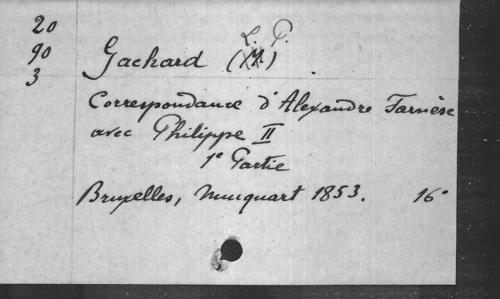 20
90
3
L. P.
Gachard (M.)
Correspondance d'Alexandre Farnèse
avec Philippe II
1e Partie
Bruxelles, Muquart 1853. 16°